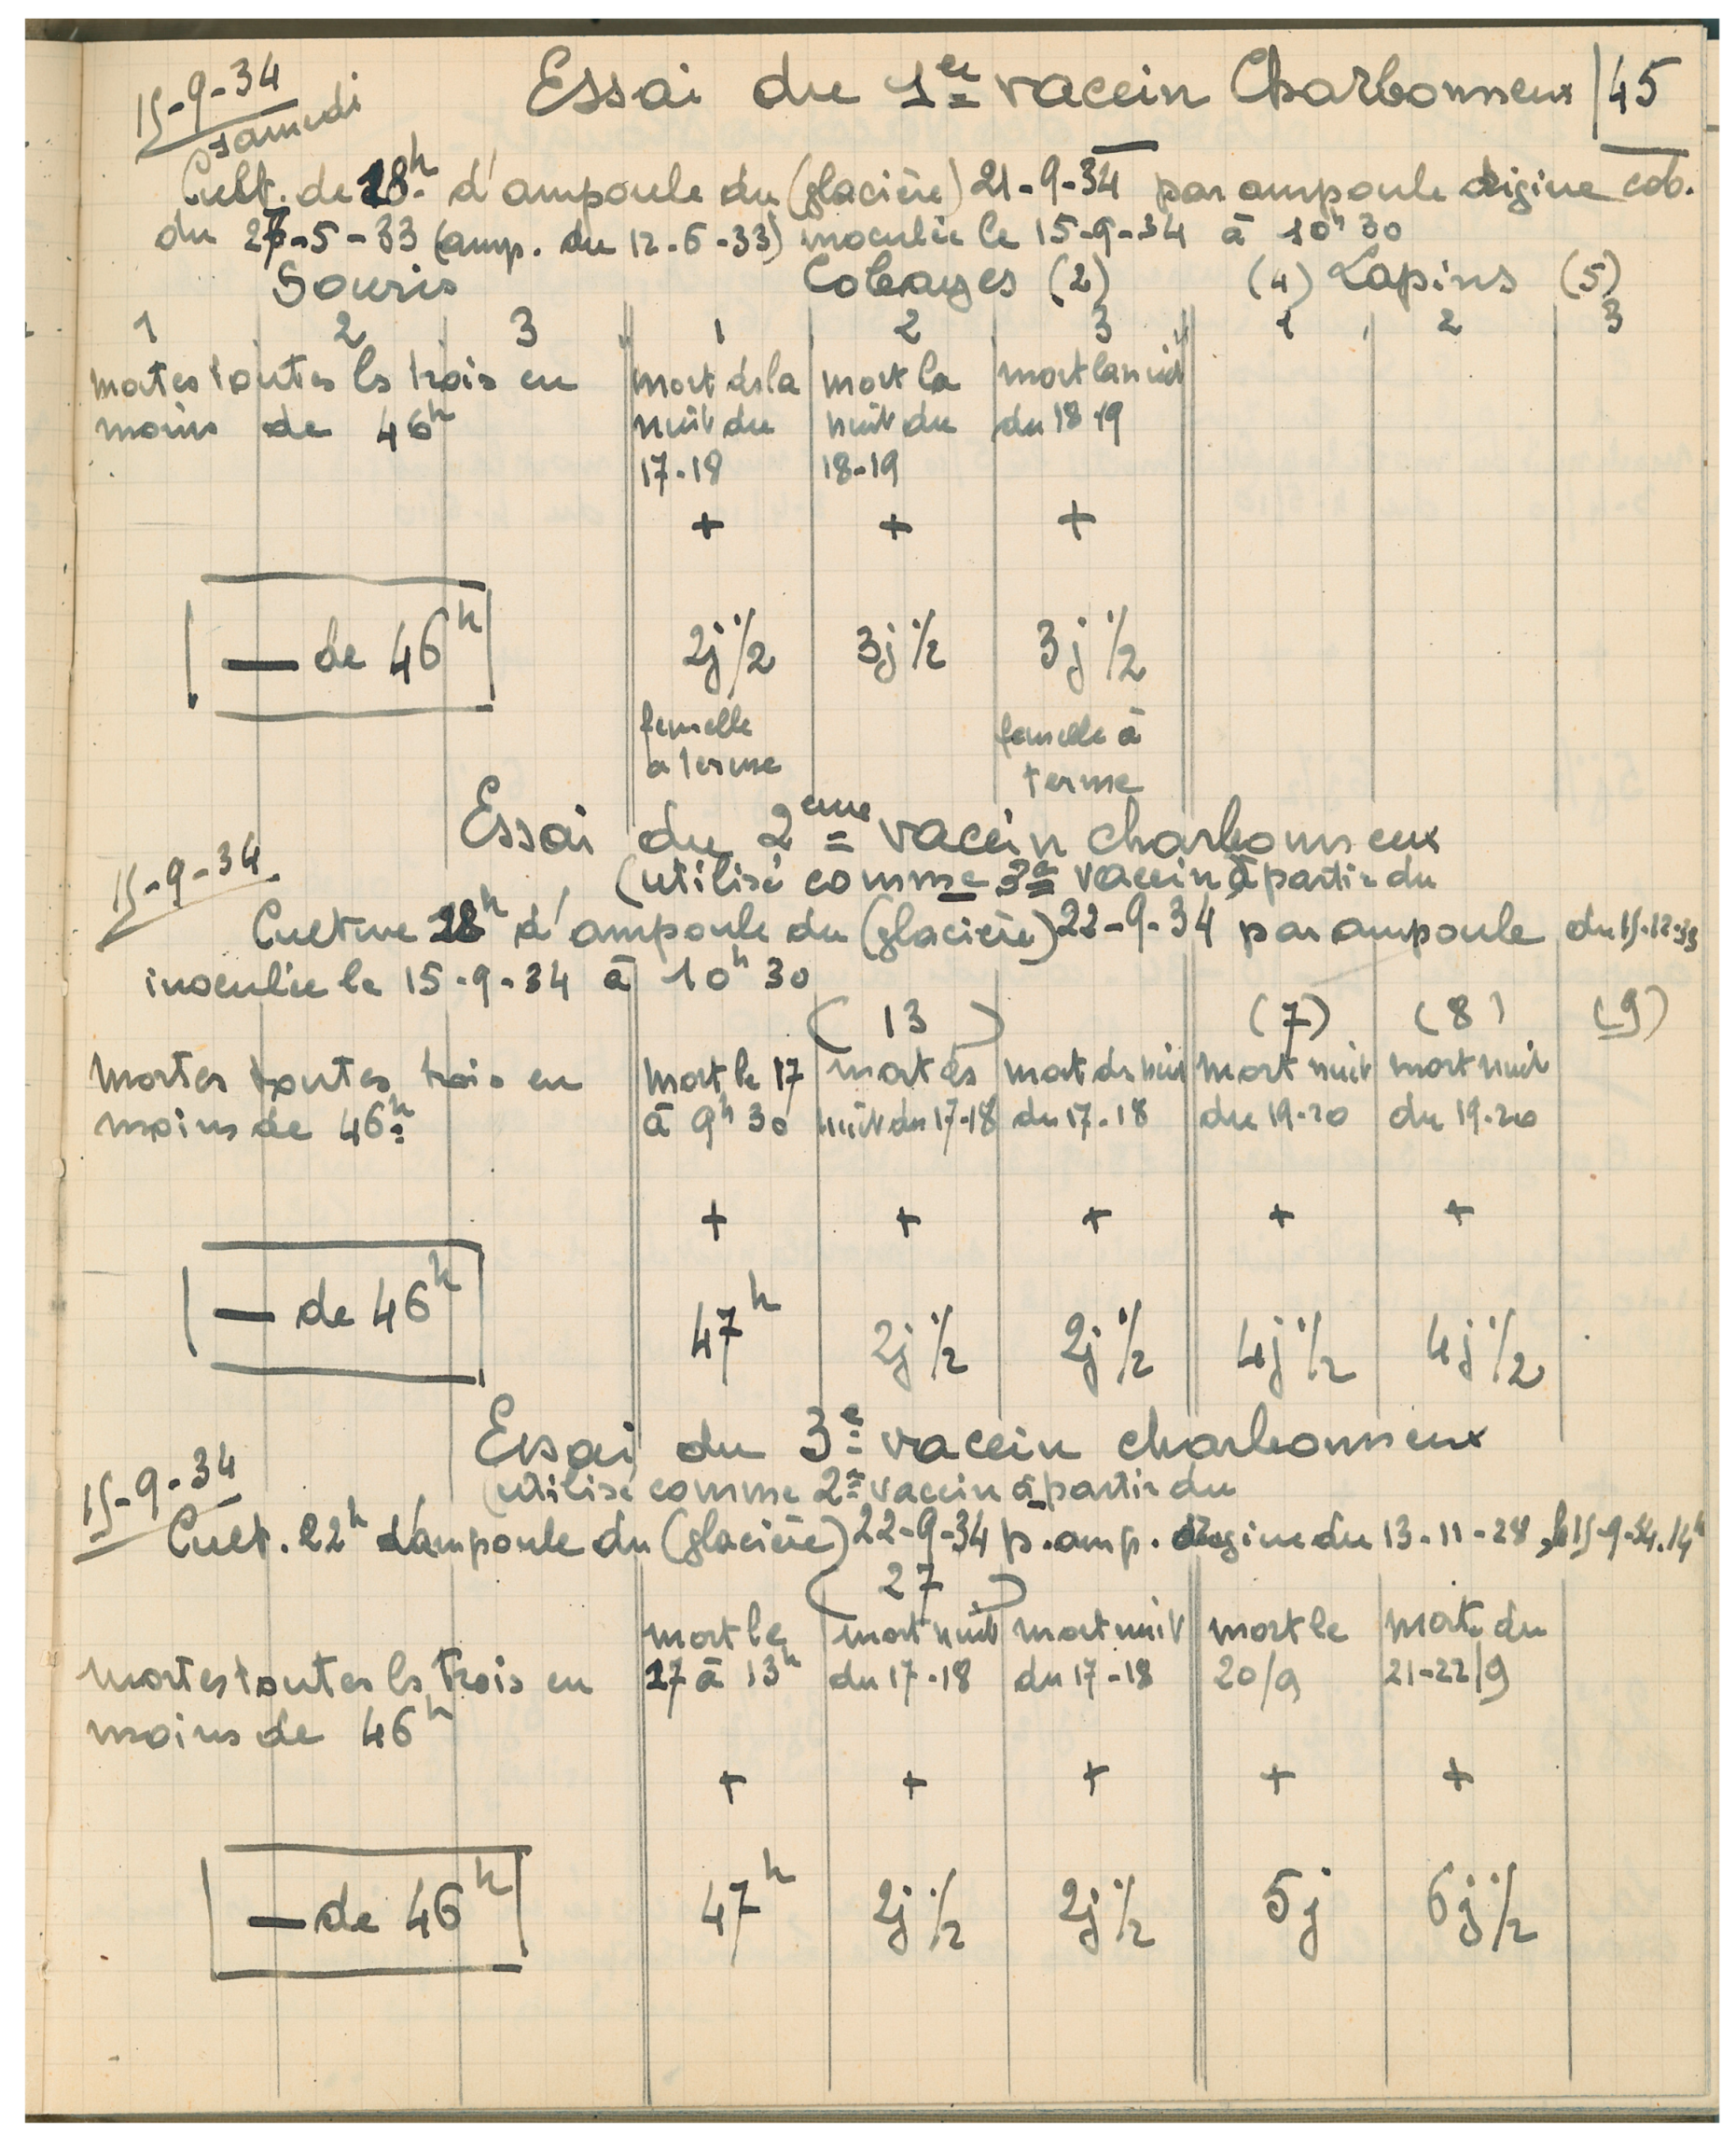 15-9-34 Essai du 1er vaccin Charbonneux 45
Samedi
Cult. de 28h d'ampoule du (glacière) 21-9-34 par ampoule origine cob.
du 27-5-33 (amp. du 12-6-33) inoculée le 15-9-34 à 10h 30
Souris Cobayes (2) (4) Lapins (5)
1 2 3 1 2 3 1 2 3
mortes toutes ls trois en mort ds la mort la mort la nuit
moins de 46h nuit du nuit du du 18-19
17-18 18-19
+ + +
— de 46h 2j 1/2 3j 1/2 3j 1/2
femelle femelle à
a terme terme
Essai du 2eme vaccin charbonneux
15-9-34 (utilisé comme 3e vaccin à partir du
Culture 28h d'ampoule du (glacière) 22-9-34 par ampoule du 15-12-33
inoculée le 15-9-34 à 10h 30
(13) (7) (8) (9)
Mortes toutes trois en mort le 17 mort ds mort ds nuit mort nuit mort nuit
moins de 46h à 9h 30 nuit du 17-18 du 17-18 du 19-20 du 19-20
+ + + + +
— de 46h 47h 2j 1/2 2j 1/2 4j 1/2 4j 1/2
Essai du 3e vaccin charbonneux
15-9-34 (utilisé comme 2e vaccin à partir du
Cult. 22h d'ampoule du (glacière) 22-9-34 p. amp. origine du 13-11-28, le 15-9-34. 14h
(27)
mort le mort nuit mort nuit mort le mort du
Mortes toutes ls trois en 17 à 13h du 17-18 du 17-18 20/9 21-22/9
moins de 46h
+ + + + +
— de 46h 47h 2j 1/2 2j 1/2 5j 6j 1/2